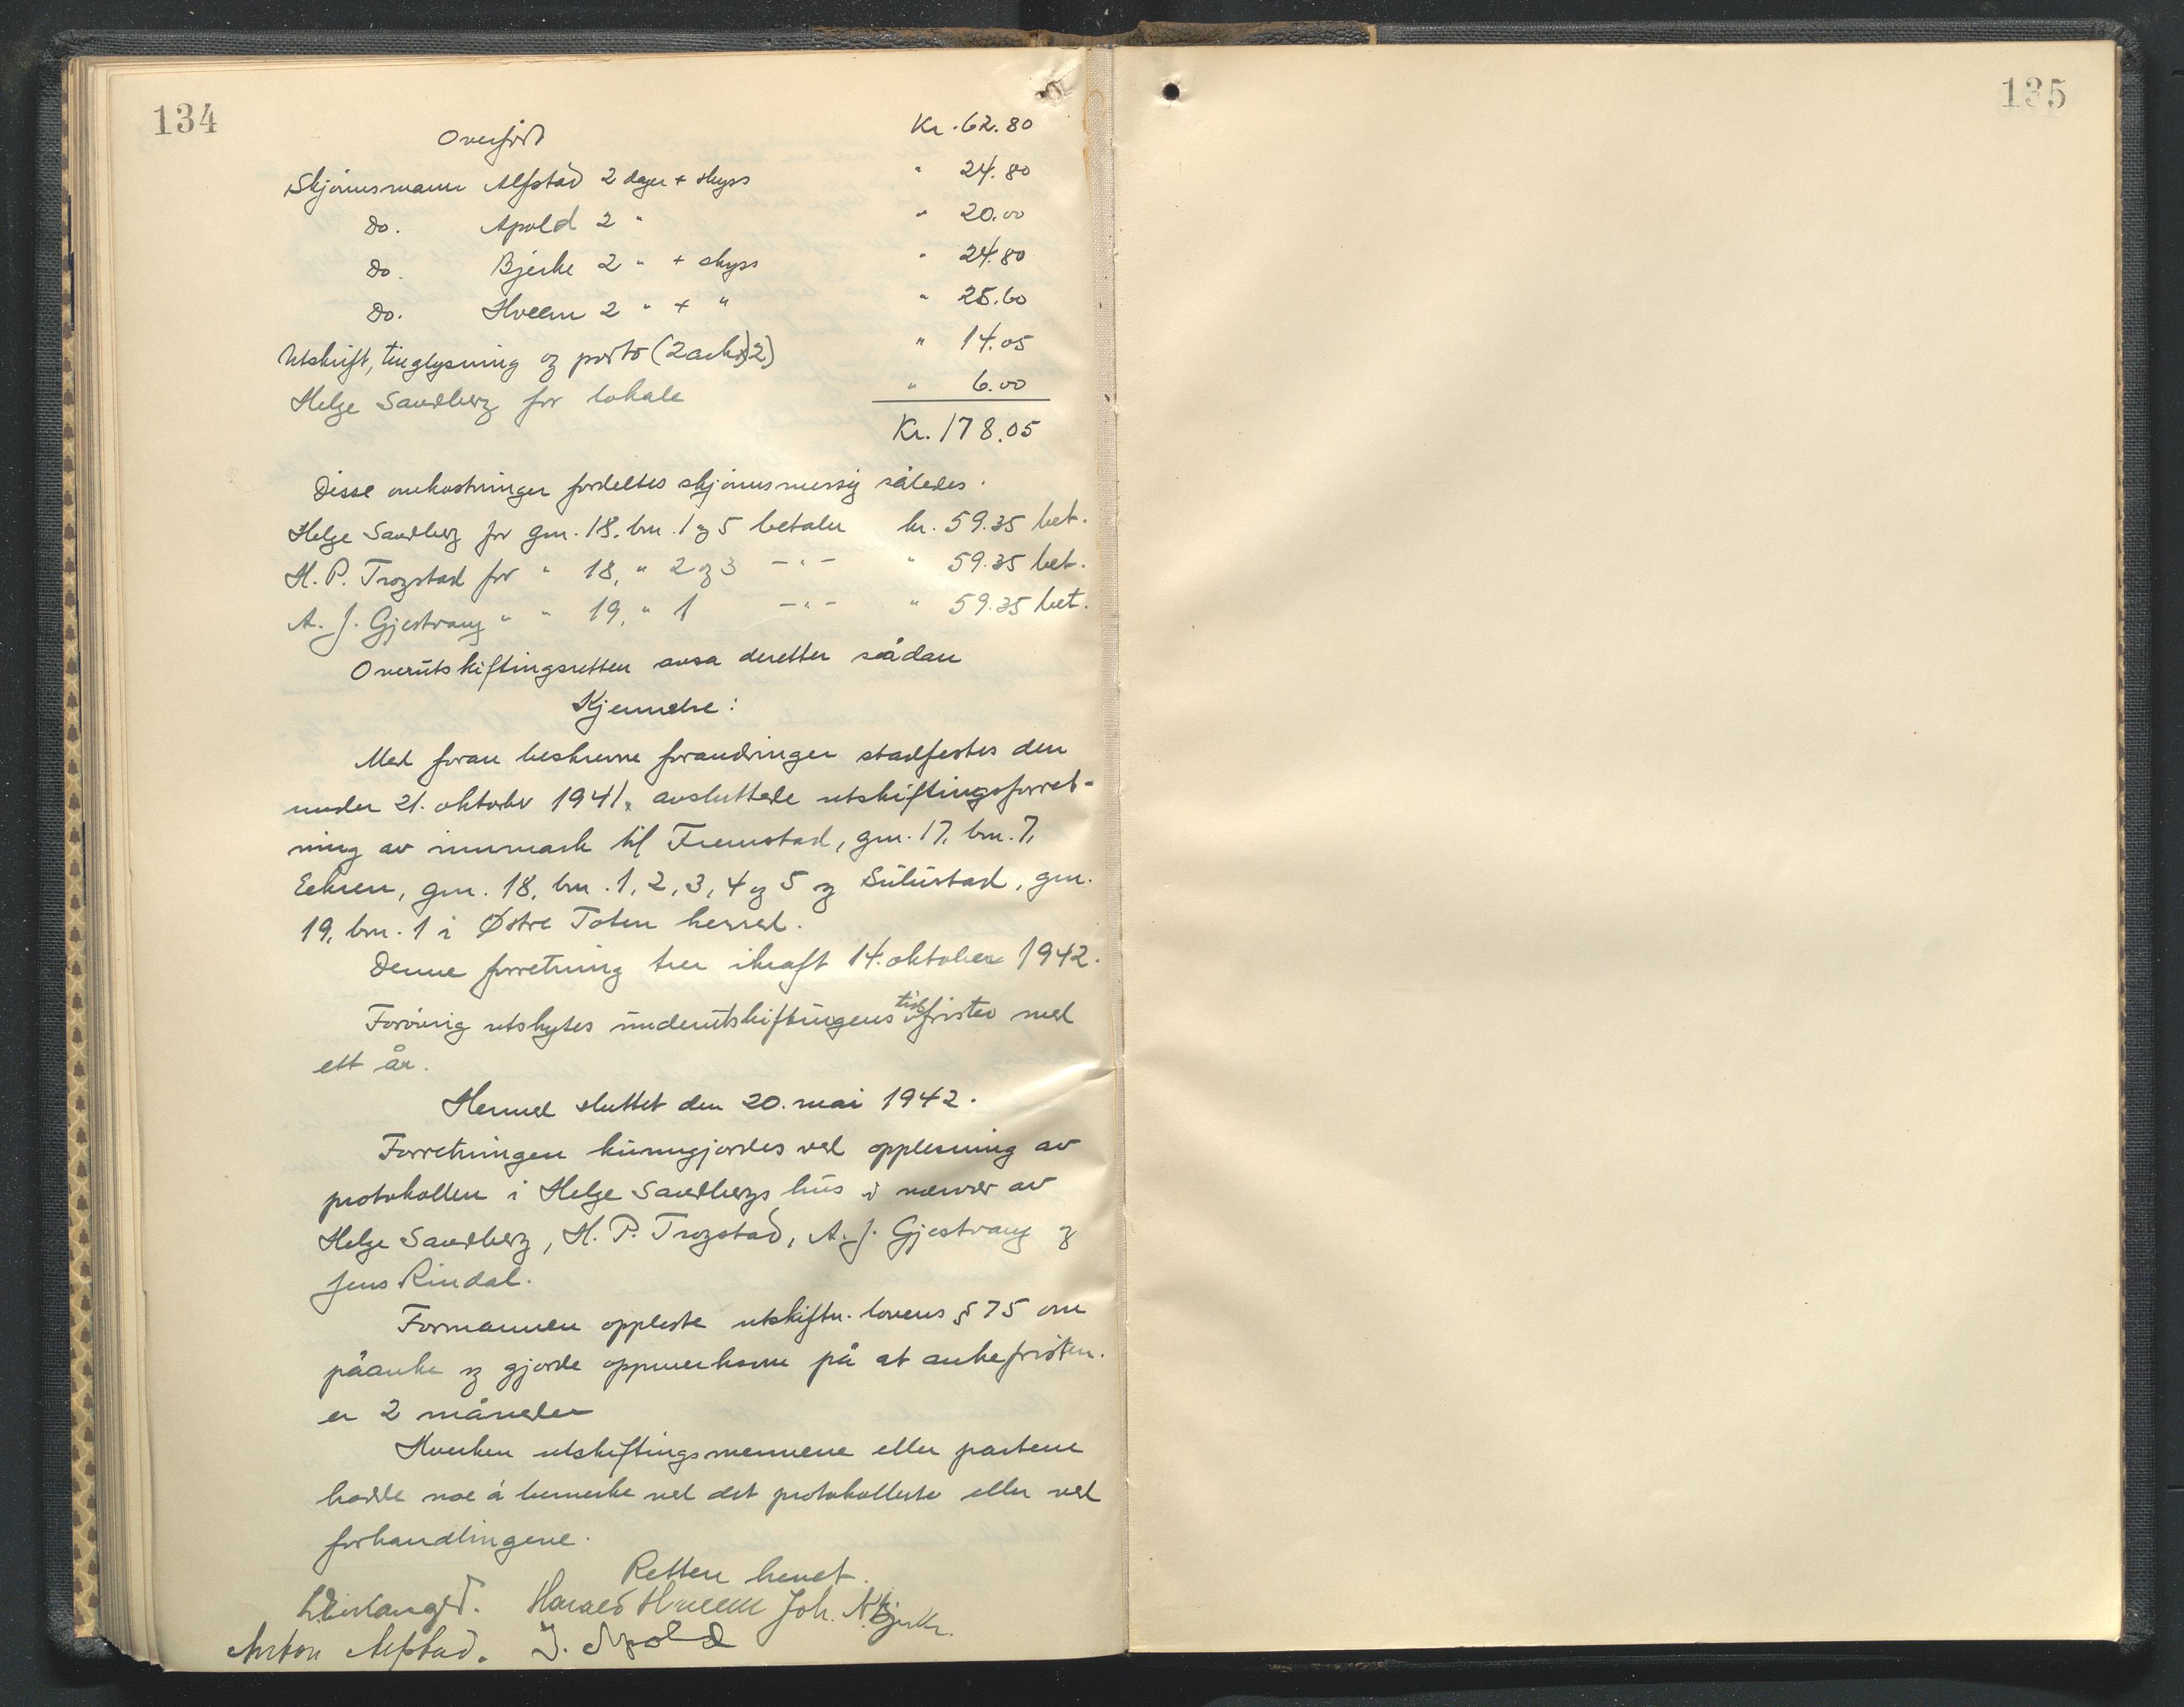 134
135
Overført Kr. 62.80
Skjønnsmann Alfstad 2 dager + skyss " 24.80
do. Apold 2 " " 20.00
do. Bjerke 2 " + skyss " 24.80
do. Hveem 2 " + " " 25.60
Utskrift, tinglysning og porto (2 ark) " 14.05
Helge Sandberg for lokale " 6.00
Kr. 178.05
Disse omkostninger fordeltes skjønnsmessig således.
Helge Sandberg for gnr. 18, bnr. 1 og 5 betaler kr. 59.35 bet.
H. P. Trogstad for " 18, " 2 og 3 -"- " 59.35 bet.
A. J. Gjestvang " " 19, " 1 -"- " 59.35 bet.
Overutskiftingsretten avsa deretter sådan
Kjennelse:
Med foran beskrevne forandringer stadfestes den
under 21. oktober 1941, avsluttede utskiftingsforret-
ning av innmark til Fremstad, gnr. 17, bnr. 7,
Eekren, gnr. 18, bnr. 1, 2, 3, 4 og 5 og Sulustad, gnr.
19, bnr. 1 i Østre Toten herred.
Denne forretning trer ikraft 14. oktober 1942.
Forøvrig utskytes underutskiftingens tidsfrister med
ett år.
Hermed sluttet den 20. mai 1942.
Forretningen kunngjordes ved opplesning av
protokollen i Helge Sandbergs hus i nærvær av
Helge Sandberg, H. P. Trogstad, A. J. Gjestvang og
Jens Rindal.
Formannen oppleste utskiftn. lovens § 75 om
påanke og gjorde oppmerksom på at ankefristen.
er 2 måneder
Hverken utskiftingsmennene eller partene
hadde noe å bemerke ved det protokollerte eller ved
forhandlingene.
Retten hevet.
Harald Hveem Joh. N. Bjerke.
Anton Alfstad. J. Apold